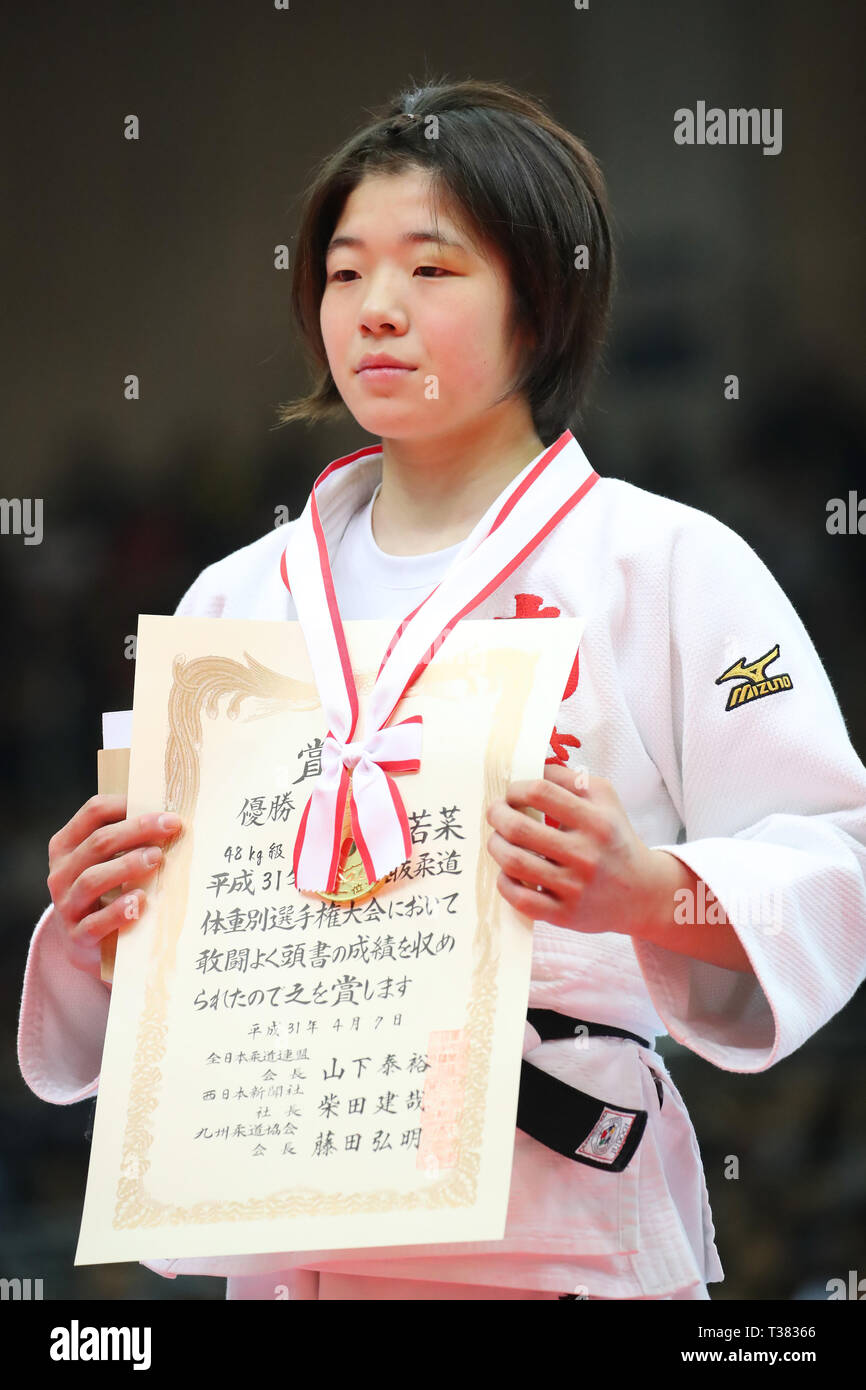 alamy
MIZUNO
賞
優勝
若菜
48kg級
平成31年
柔道
体重別選手権大会において
敢闘よく頭書の成績を収め
られたので之を賞します
平成31年4月7日
全日本柔道連盟
会長 山下泰裕
西日本新聞社
社長 柴田建哉
九州柔道協会
会長 藤田弘明
位
a
alamy
Image ID: T38366
www.alamy.com